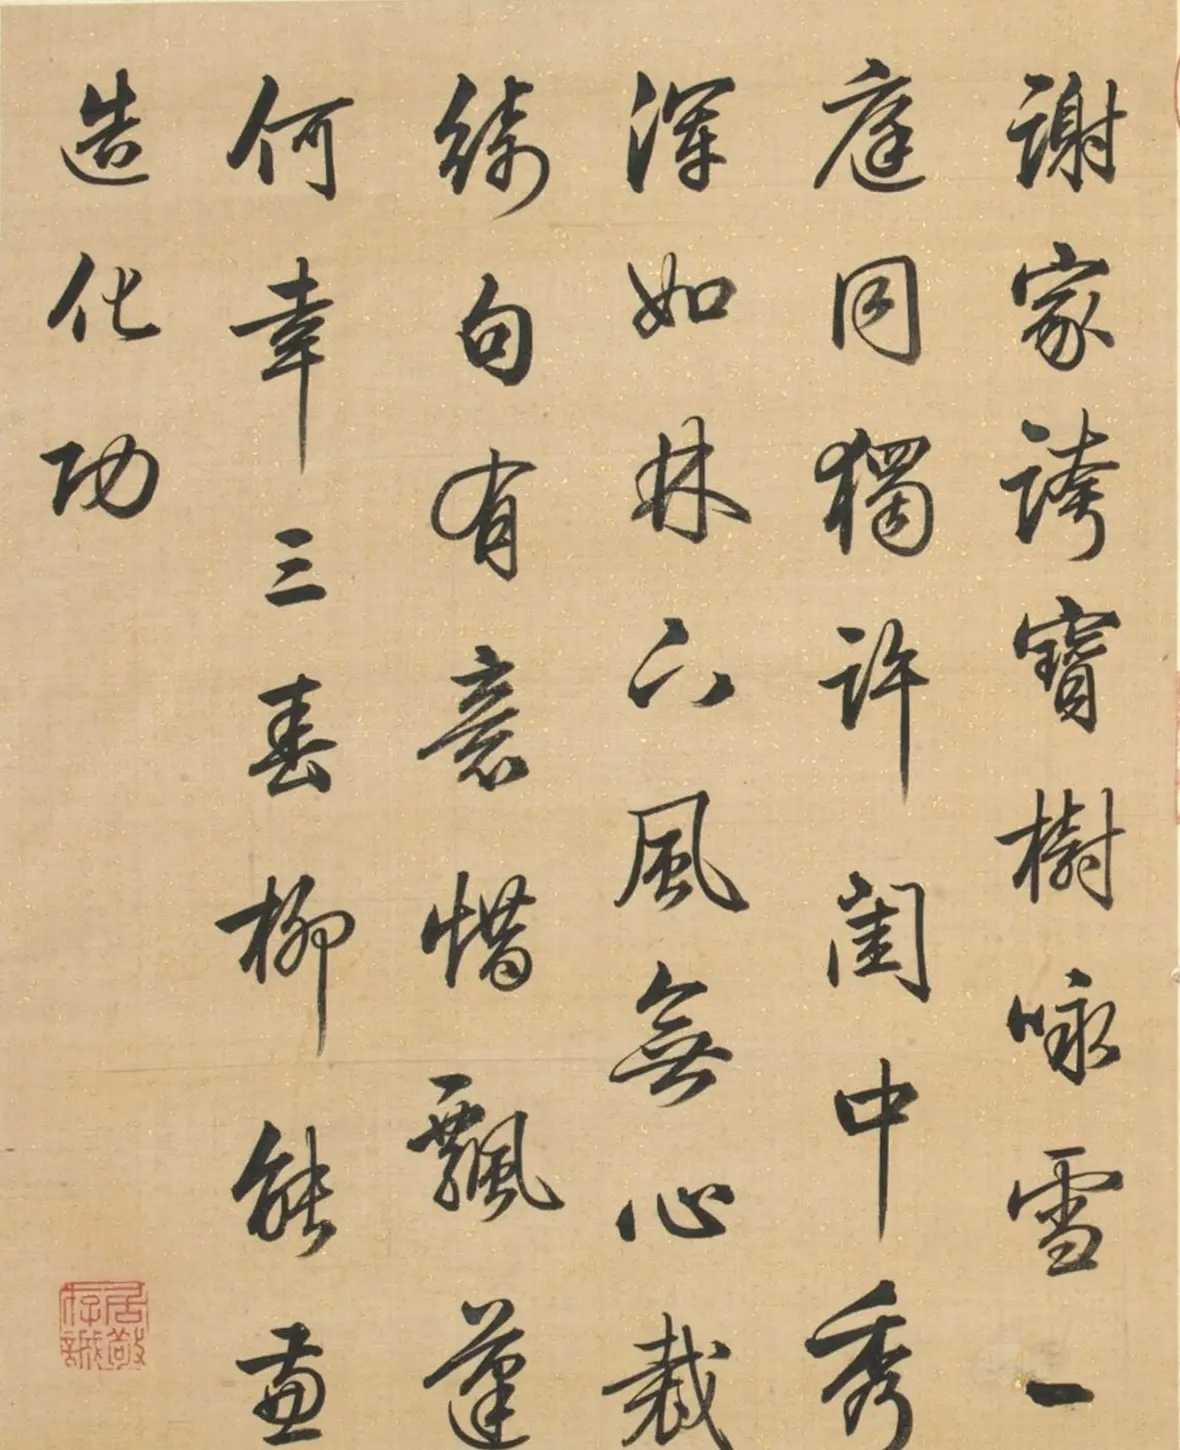 謝家誇寶樹咏雪一
庭同獨許閨中秀
渾如林下風無心裁
綺句有意惜飄蓬
何幸三春柳能盡
造化功
居敬
存誠